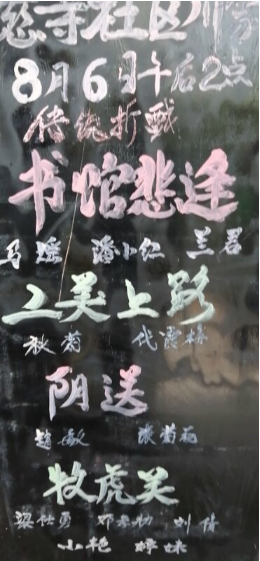 慈寺社区川
8月6日午后2点
传统折戏
书馆悲逢
马瑶 潘小红 兰君
二美上路
秋菊 代霞林
阴送
赵敏 张菊丽
牧虎关
梁仕勇 刘倩
小艳 婷妹